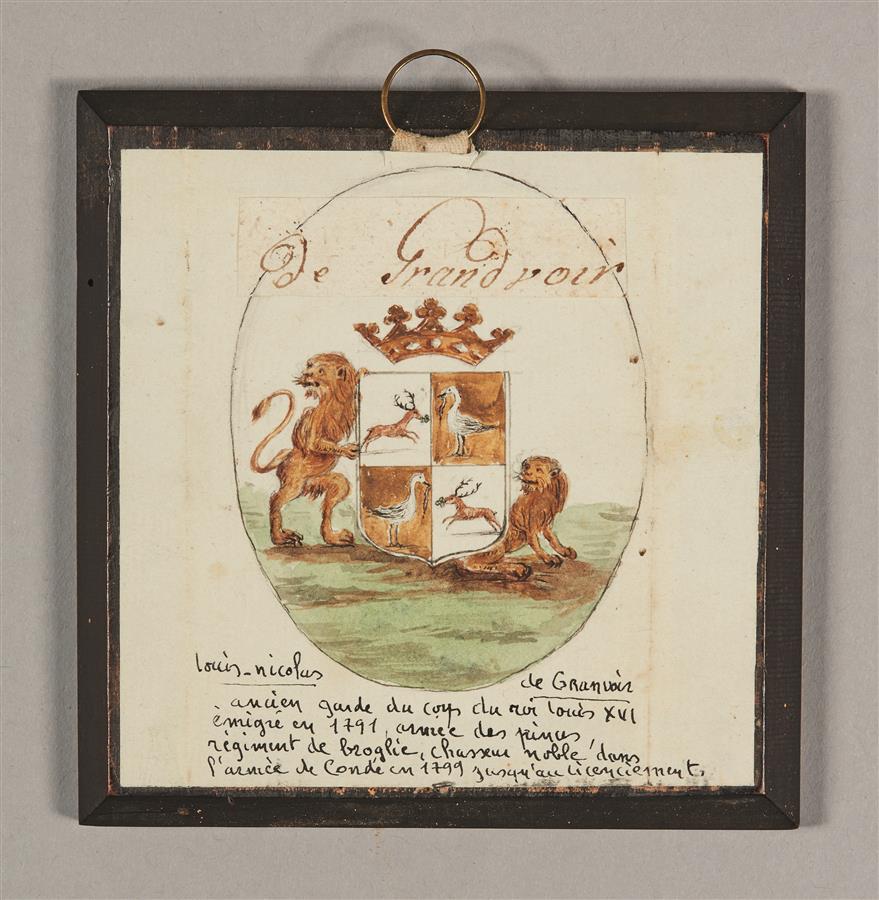 de Grandvoir
louis-nicolas de Granvoir
ancien garde du corp du roi louis XVI
émigré en 1791, armée des princes
régiment de broglie, chasseur noble dans
l'armée de Condé en 1799 jusqu'au licenciement.